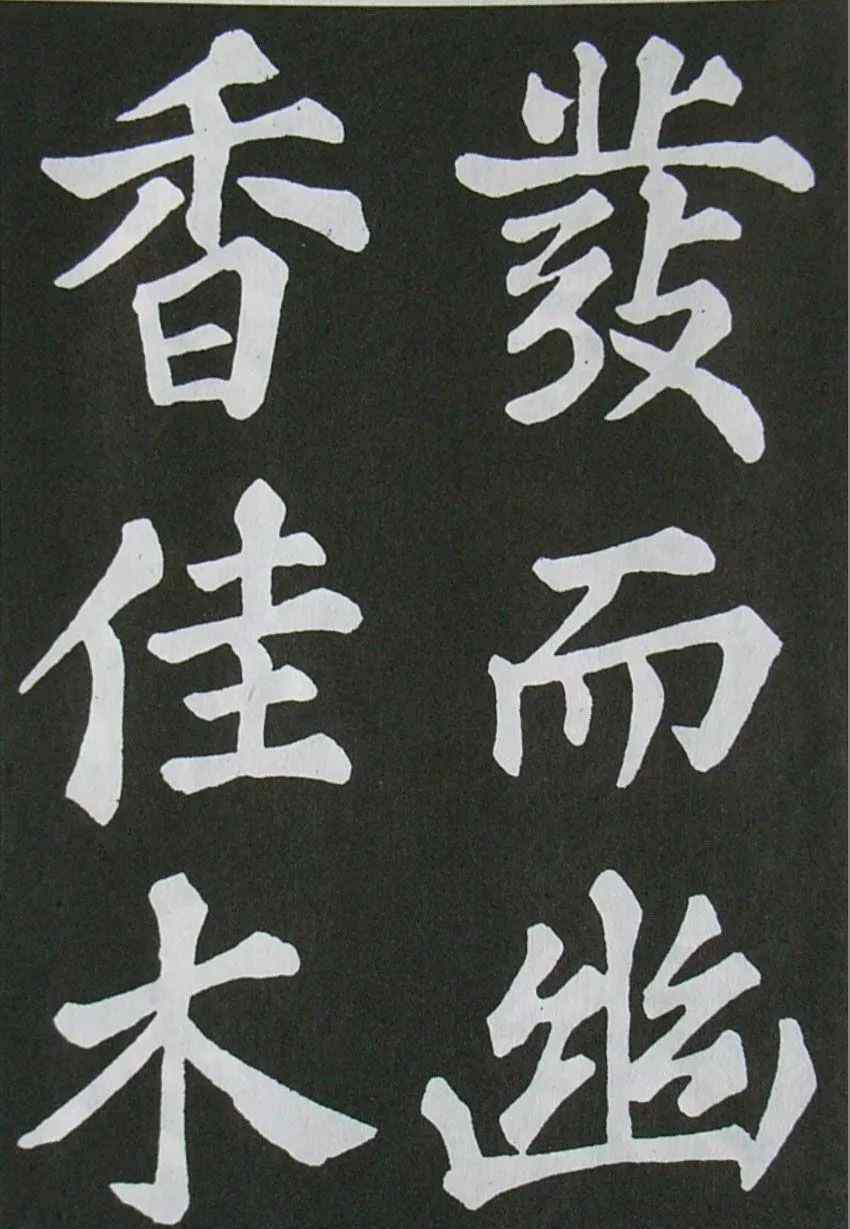 發而幽
香佳木